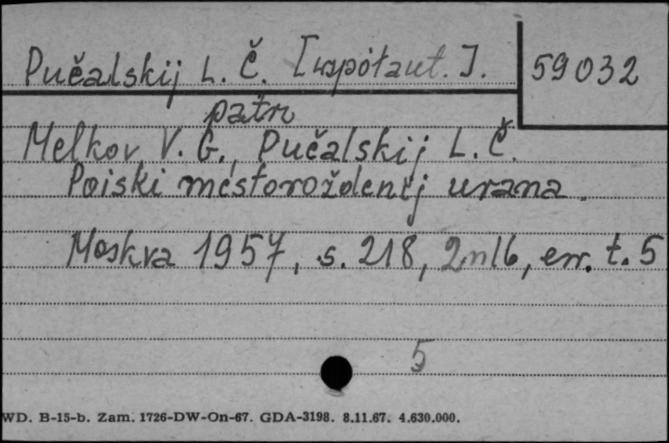 Pučalskij L. Č. [współaut.]. 59032
patrz
Melkov V. G., Pučalskij L. Č.
Poiski mestoroždenij urana.
Moskva 1957, s. 218, 2 nlb, err. t. 5
5
WD. B-15-b. Zam. 1726-DW-On-67. GDA-3198. 8.11.67. 4.630.000.